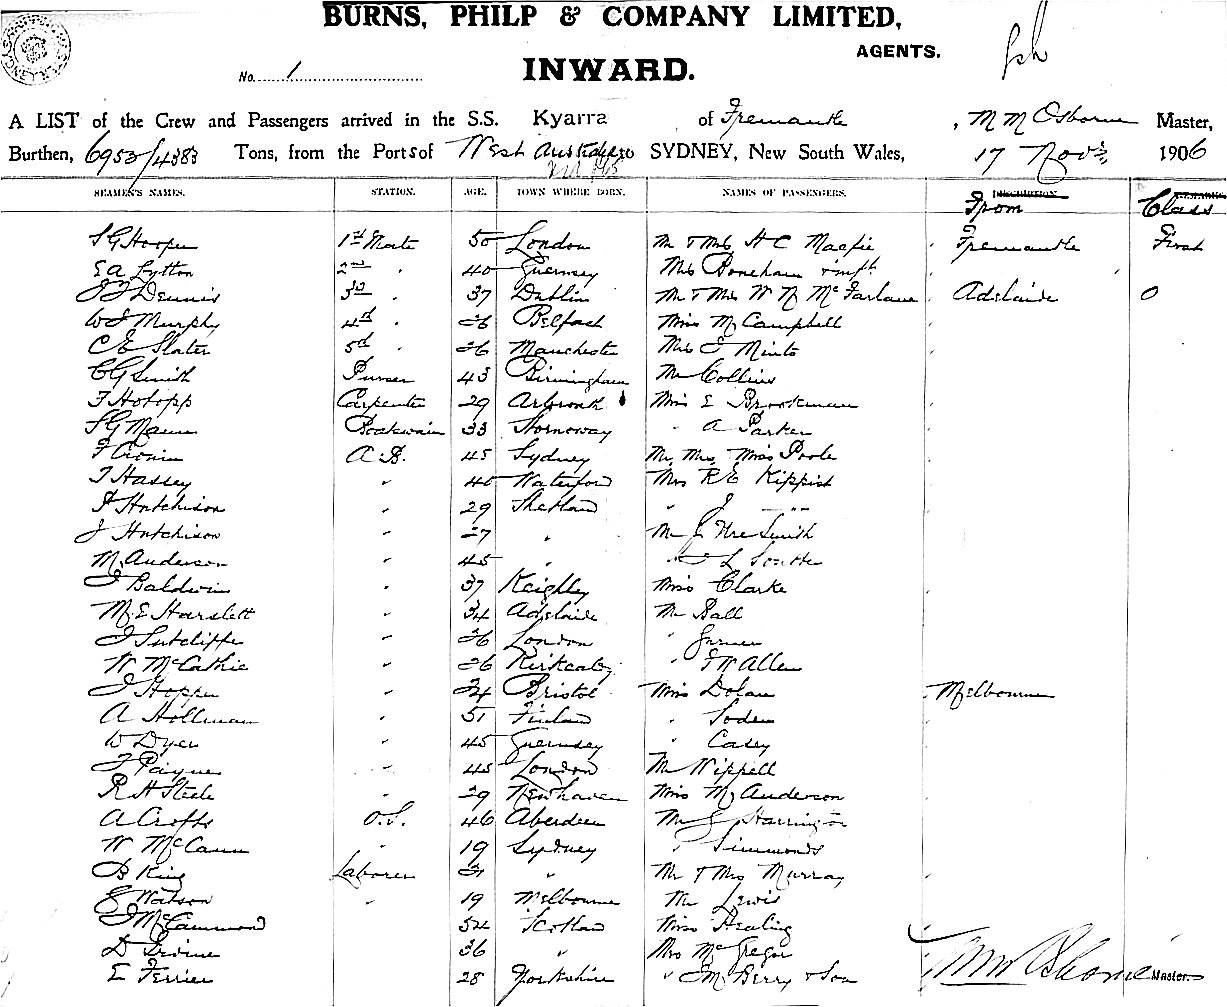 BURNS, PHILP & COMPANY LIMITED,
AGENTS.
No. 1
INWARD.
A LIST of the Crew and Passengers arrived in the S.S. Kyarra of Fremantle , M M Osborne Master,
Burthen, 6953/4383 Tons, from the Ports of West Australia to SYDNEY, New South Wales, 17 Novr 1906
SEAMEN'S NAMES. STATION. AGE. TOWN WHERE BORN. NAMES OF PASSENGERS. From Class
S G Hooper 1st Mate 50 London Mr & Mrs H C Macfie Fremantle First
E A Lytton 2nd " 40 Guernsey Mrs Boneham & inft
J J Dennis 3rd " 37 Dublin Mr & Mrs W N McFarlane Adelaide
W J Murphy 4th " 26 Belfast Miss M Campbell
C E Slater 5th " 26 Manchester Mrs J Minto
C G Smith Purser 43 Birmingham Mr Collins
F Hotopp Carpenter 29 Arbroath Miss E Brookman
S G Mann Boatswain 33 Stornoway " A Parker
F Cronin A.B. 45 Sydney Mr, Mrs, Miss Poole
T Hassey " 40 Waterford Mrs R E Kippist
Hutchison " 29 Shetland " J " "
J Hutchison " 27 " Mr Smith
M Anderson " 45 "
J Baldwin " 37 Keighley Miss Clarke
M E Harslett " 34 Adelaide Mr Ball
J Sutcliffe " 26 London "
W McCathie " 26 Kirkcaldy " F W Allen
J Hopper " 24 Bristol Miss Dolan Melbourne
A Hollman " 51 Finland " Soden
W Dyer " 45 Guernsey " Casey
J Payne " 45 London Mr Wippell
R H Steele " 29 Newhaven Miss M Anderson
A Crofts O.S. 46 Aberdeen Mr J Harrington
W McCann " 19 Sydney " Simmonds
B King Laborer 21 " Mr & Mrs Murray
Watson " 19 Melbourne Mr Lewis
J McCammond 54 Scotland Miss Healing
D Devine 36 " Mrs McGregor
E Ferrier 28 Yorkshire " J M Berry & Son M M Osborne Master.